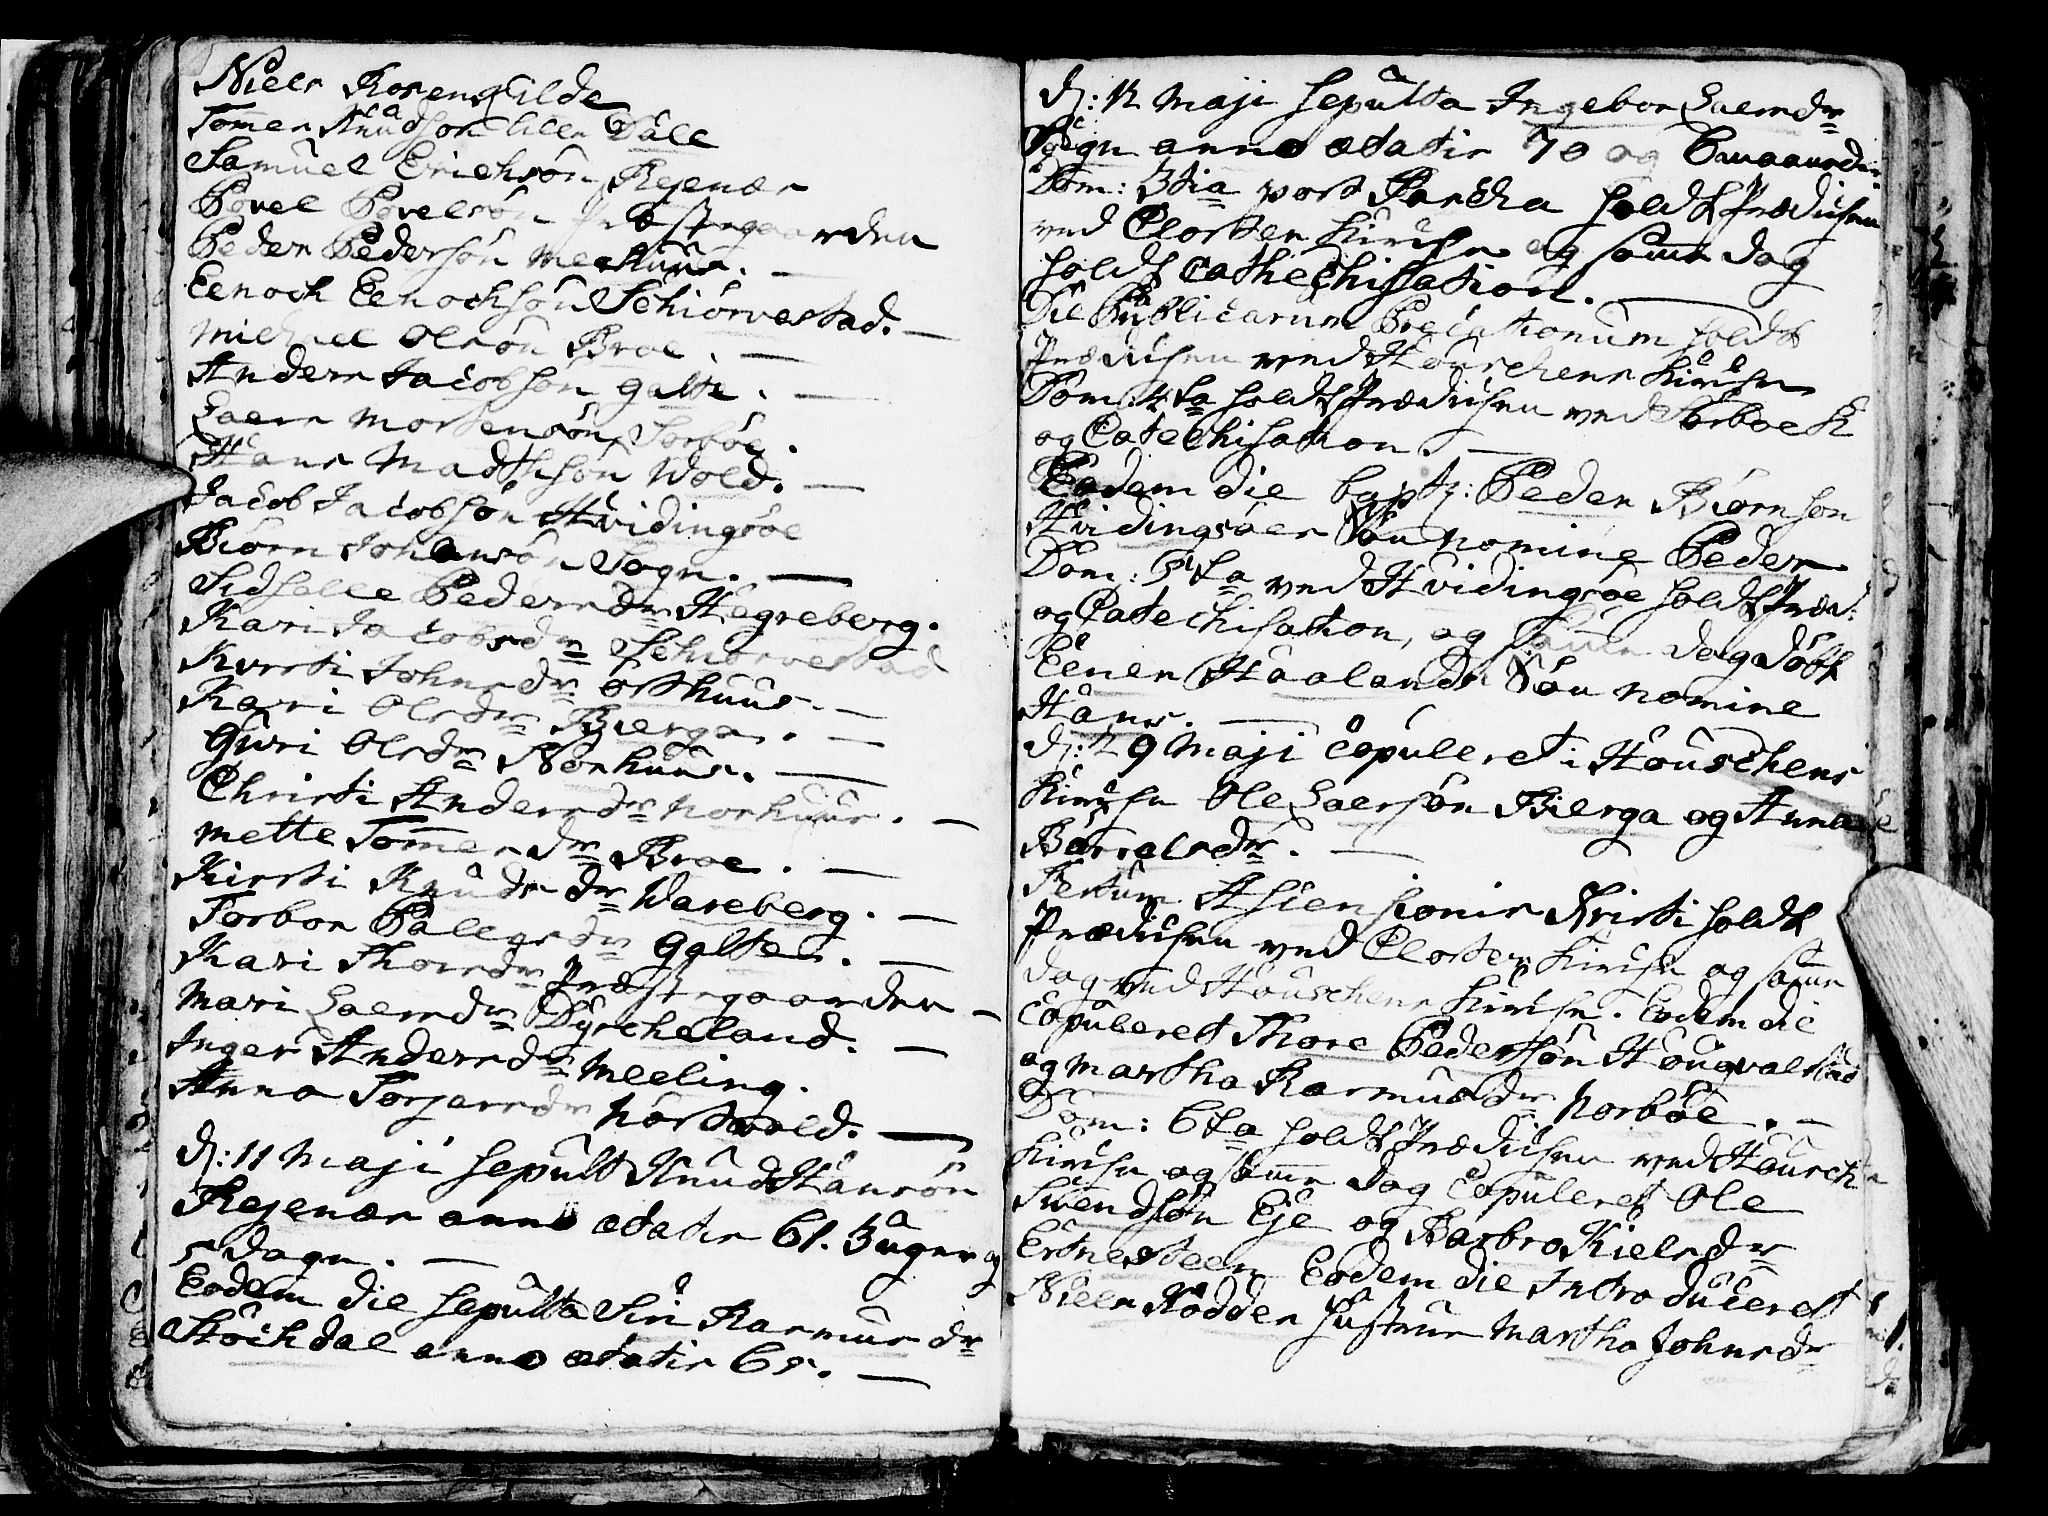 Niels Rosengilde
Tomes Knudsøn lille Dale
Samuel Erichsøn Rejenæs
Povel Povelsøn Præstegaarden
Peder Pedersøn Meehuus. —
Eenoch Eenochsøn Schiørvestad. —
Michael Olsøn Broe. —
Anders Jacobsøn Galte. —
Laers Mortensøn Sørbøe.
Hans Madthsøn Wold. —
Jacob Jacobsøn Hvidingsøe
Biørn Johansøn Sogn. —
Sidselle Pedersdr Hegreberg.
Kari Jacobsdr Schiørvestad
Kirsti Johnsdr Østhuus. —
Kari Olsdr Bierga. —
Guri Olsdr Norhuus. —
Christi Andersdr Norhuus. —
Mette Tomesdr Broe. —
Kirsti Knudsdr Wareberg. —
Torbor Pallesdr Galte. —
Kari Thoresdr Præstegaarden —
Mari Laersdr Dyrcheland. —
Inger Andersdr Meeling.
Anna Torjersdr Nortvold. —
D: 11 Maji sepult Knud Hansøn
Rejenæs anno ætatis 61. 3 uger og
5 dage. —
Eodem die sepulta Siri Rasmusdr
Støchdal anno ætatis 65. —
D: 12 Maji sepulta Ingebor Laersdr
Sogn anno ætatis 70 og 6 maaneder
Dom: 3tia post Pascha holdt Prædichen
ved Closter Kirche og same dag
holdt Cathechisation. —
Die Publicarum Precationum holdt
Prædichen ved Houschens Kirche
Dom: 4ta holdt Prædichen ved Sørboe K
og Catechisation. —
Eodem die bapt: Peder Biørnsøn
Hvidingsøes Søn nomine Peder
Dom: 5ta ved Hvidingsøe holdt Præd:
og Catechisation, og same dag døbt
Eener Haalands Søn nomine
Hans. —
D: 29 Maji copuleret i Houschens
Kirche Ole Laersøn Bierga og Anna
Børrelsdr. —
Festum Ascensionis Kristi holdt
Prædichen ved Closter Kirche og same
dag ved Houschens Kirche. Eodem die
copuleret Thore Pedersøn Hougvalstad
og Martha Rasmusdr Norbøe. —
Dom: 6ta holdt Prædichen ved Housch
Kirche og same dag copuleret Ole
Swendsøn Eje og Barbro Kielsdr
Ertnesteen Eodem die Introduceret
Niels Rødder hustrue Martha Johnsdr